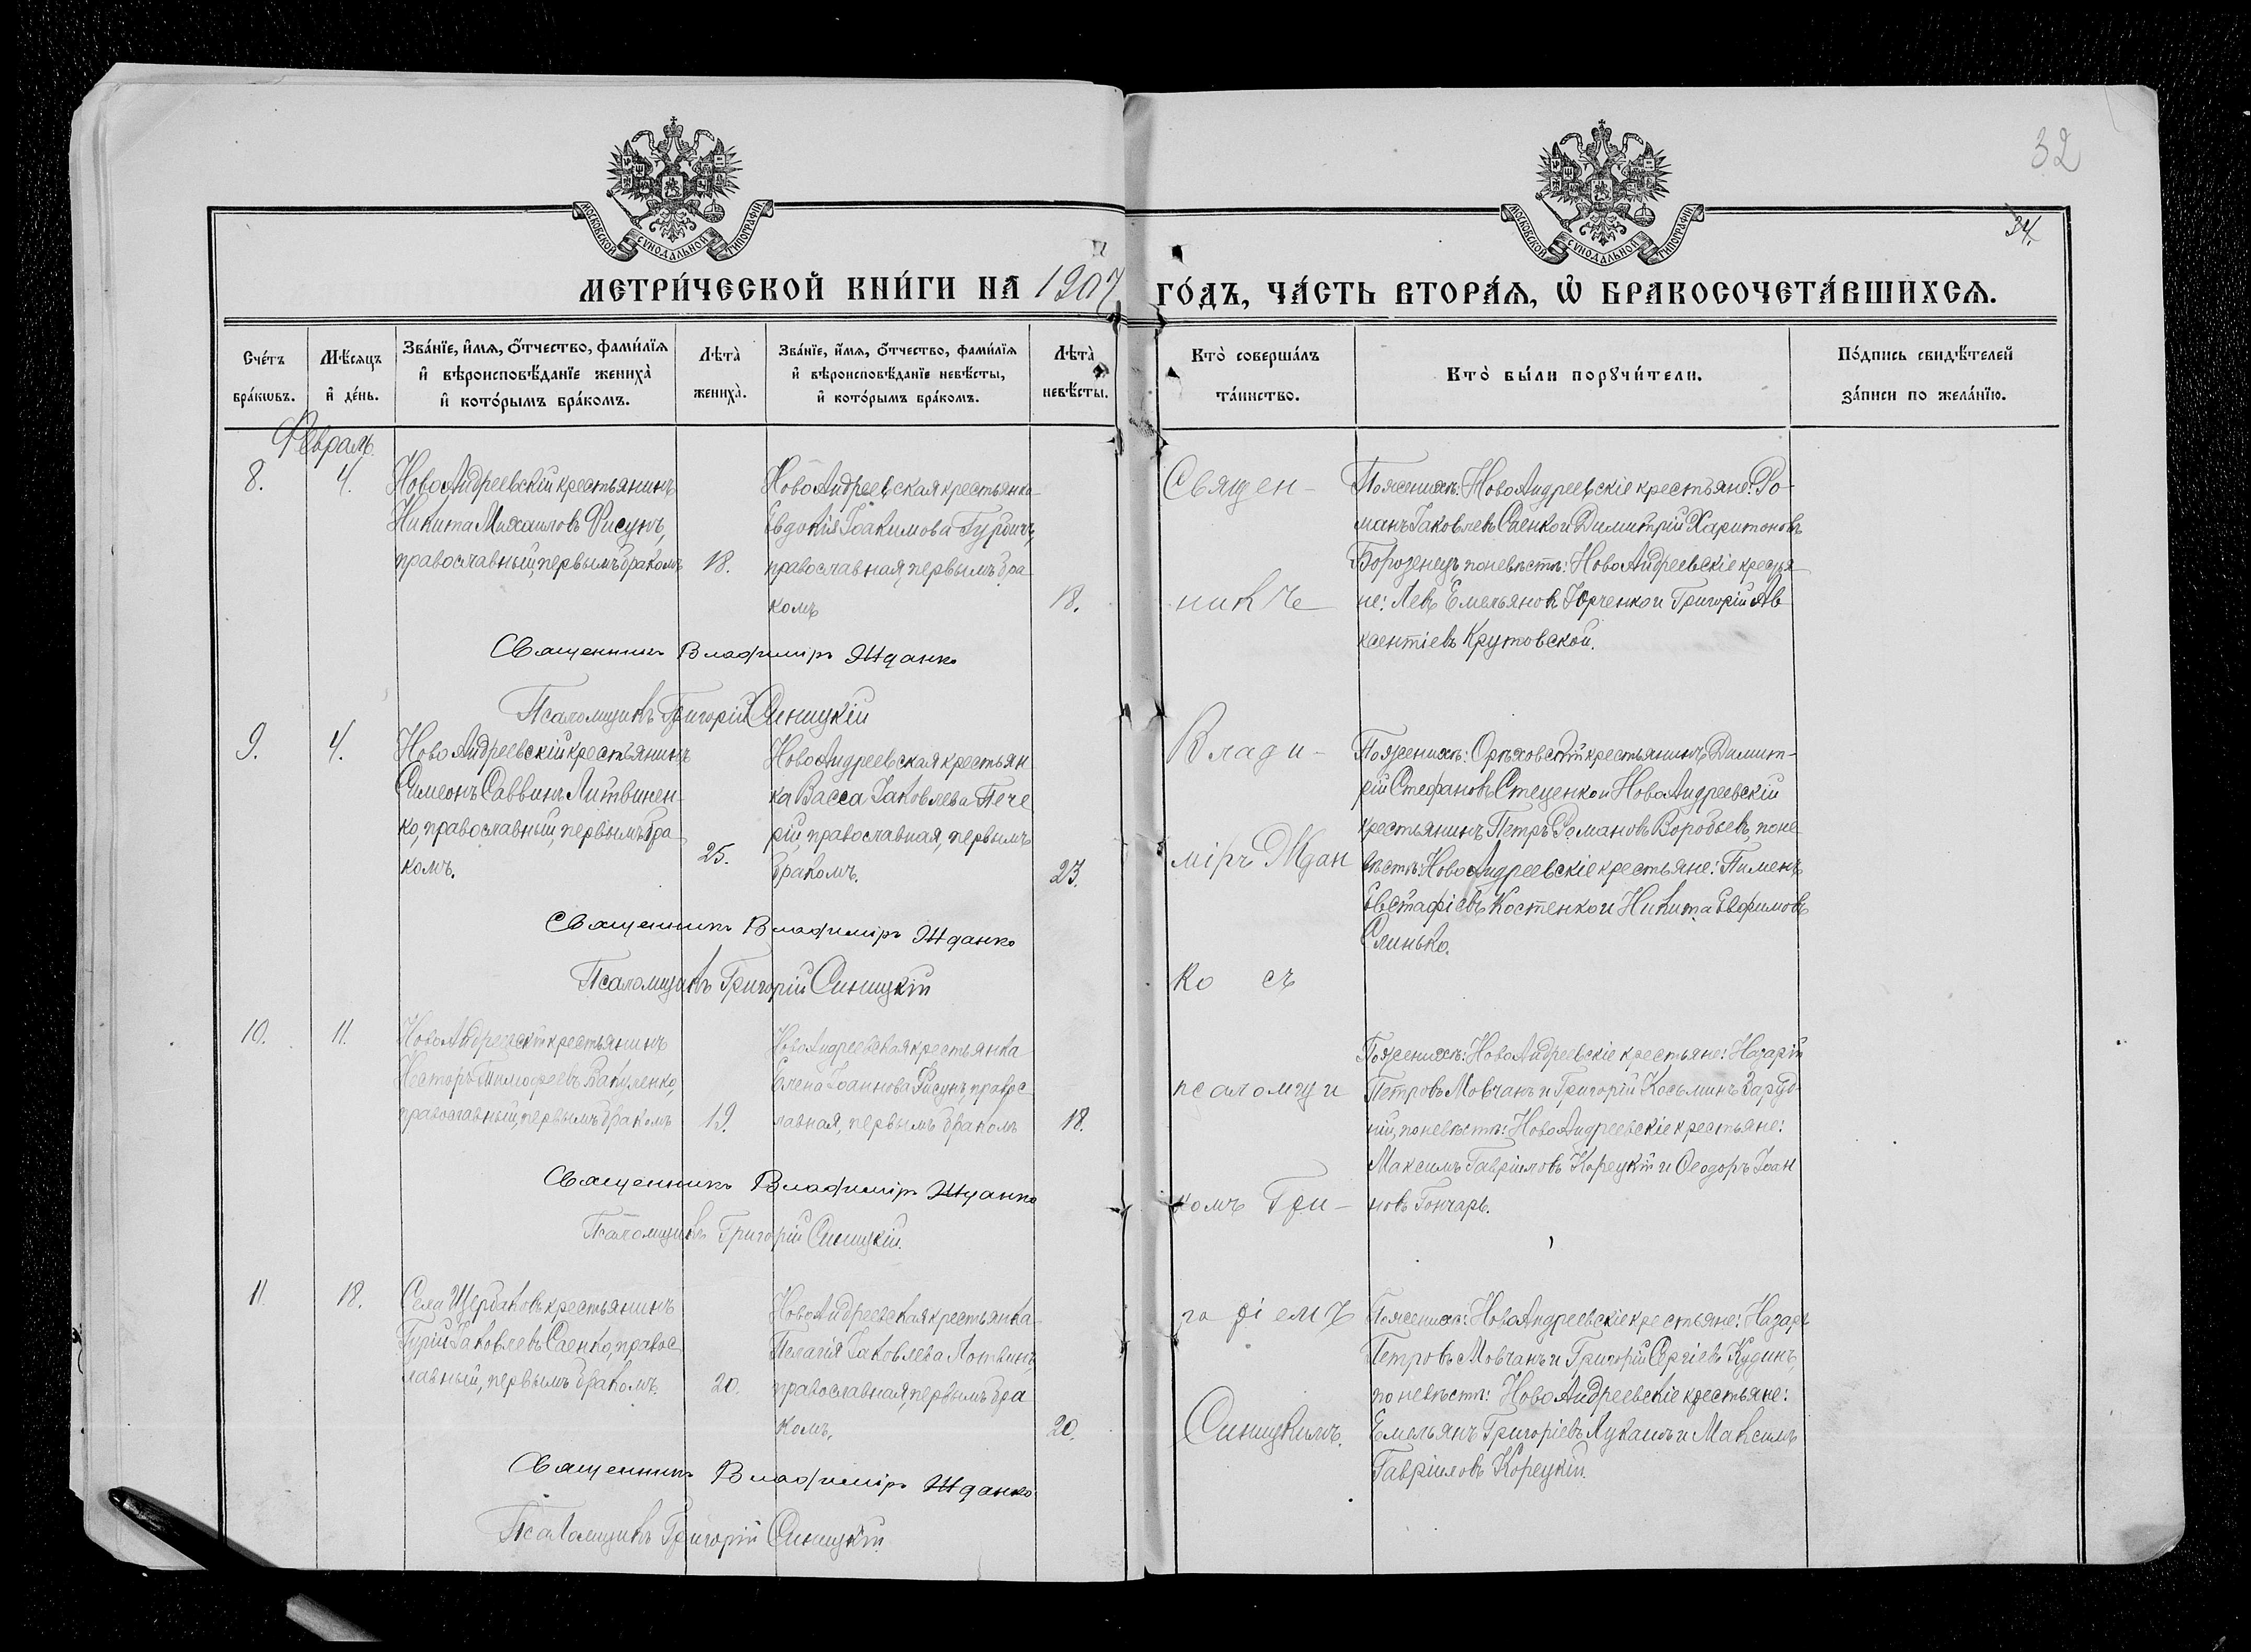 32
34.
МОСКОВСКОЙ СѴНОДАЛЬНОЙ ТИПОГРАФІИ
МОСКОВСКОЙ СѴНОДАЛЬНОЙ ТИПОГРАФІИ
МЕТРИ́ЧЕСКОЙ КНИ́ГИ НА 1907 ГО́ДЪ, ЧА́СТЬ ВТОРА́Ѧ, Ѡ҆ БРАКОСОЧЕТА́ВШИХСѦ.
Сче́тъ бра́кѡвъ.
Мѣ́сѧцъ и҆ де́нь.
Зва́нїе, и҆́мѧ, ѻ҆́тчество, фами́лїѧ
и҆ вѣроисповѣ́данїе жениха̀
и҆ кото́рымъ бра́комъ.
Лѣта̀ жениха̀.
Зва́нїе, и҆́мѧ, ѻ҆́тчество, фами́лїѧ
и҆ вѣроисповѣ́данїе невѣ́сты,
и҆ кото́рымъ бра́комъ.
Лѣта̀ невѣ́сты.
Кто̀ соверша́лъ та́инство.
Кто̀ бы́ли порꙋчи́тели.
По́дпись свидѣ́телей за́писи по жела́нїю.
Февраль.
8.
4.
НовоАндреевскій крестьянинъ
Никита Михаиловъ Фисунъ,
православный, первымъ бракомъ
18.
НовоАндреевская крестьянка
Евдокія Іоакимова Гурбичъ,
православная, первымъ бра-
комъ
18.
Священникъ Владиміръ Жданко
Псаломщикъ Григорій Синицкій
По женихѣ: НовоАндреевскіе крестьяне: Ро-
манъ Іаковлевъ Саенко и Димитрій Харитоновъ
Борозенецъ по невѣстѣ: НовоАндреевскіе крестья-
не: Левъ Емельяновъ Юрченко и Григорій Ав
ксентіевъ Крутовской.
9.
4.
НовоАндреевскій крестьянинъ
Симеонъ Саввинъ Литвинен-
ко, православный, первымъ бра
комъ.
25.
НовоАндреевская крестьян
ка Васса Іаковлева Пече
рій, православная, первымъ
бракомъ.
23.
Священникъ Владиміръ Жданко
Псаломщикъ Григорій Синицкій
По женихѣ: Орѣховскій крестьянинъ Димит-
рій Стефановъ Стеценко и НовоАндреевскій
крестьянинъ Петръ Романовъ Воробьевъ, по не
вѣстѣ: НовоАндреевскіе крестьяне: Пименъ
Евстафіевъ Костенко и Никита Евфимовъ
Слинько.
10.
11.
НовоАндреевскій крестьянинъ
Несторъ Тимофеевъ Вакуленко,
православный, первымъ бракомъ
19.
НовоАндреевская крестьянка
Елена Іоаннова Фисунъ, правос
лавная, первымъ бракомъ
18.
Священникъ Владиміръ Жданко
Псаломщикъ Григорій Синицкій.
По женихѣ: НовоАндреевскіе крестьяне: Назарій
Петровъ Мовчанъ и Григорій Косьминъ Заруд-
ній, по невѣстѣ: НовоАндреевскіе крестьяне:
Максимъ Гавріиловъ Корецкій и Ѳеодоръ Іоан
новъ Гончаръ.
11
18.
Села Щербаковъ крестьянинъ
Гурій Іаковлевъ Саенко, правос
лавный, первымъ бракомъ.
20.
НовоАндреевская крестьянка
Пелагія Іаковлева Логвинъ,
православная, первымъ бра
комъ.
20.
Священникъ Владиміръ Жданко
Псаломщикъ Григорій Синицкій
По женихѣ: НовоАндреевскіе крестьяне: Назаръ
Петровъ Мовчанъ и Григорій Сергіевъ Кудинъ
по невѣстѣ: НовоАндреевскіе крестьяне:
Емельянъ Григоріевъ Лукашъ и Максимъ
Гавріиловъ Корецкій.
Священ-
никъ
Влади-
міръ Ждан
ко съ
псаломщи
комъ Гри-
горіемъ
Синицкимъ.